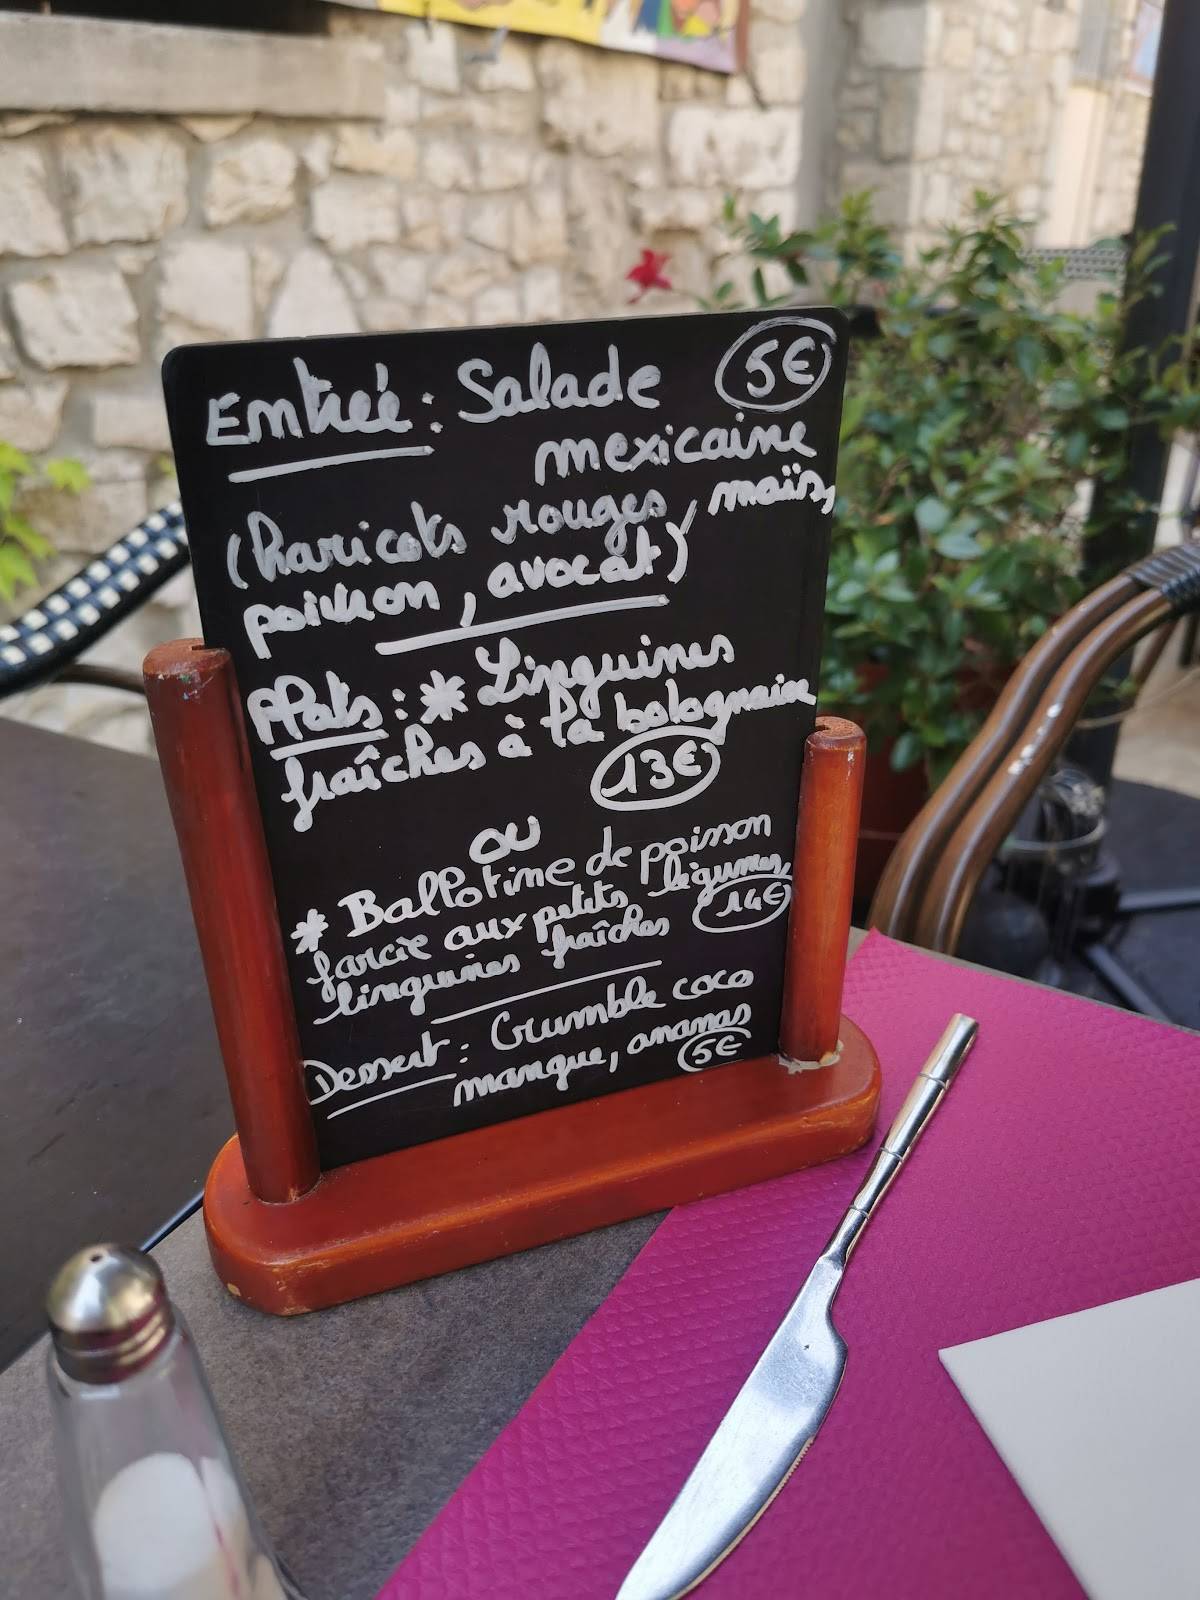 Entrée : Salade 5€
mexicaine
(haricots rouges, maïs,
poivron, avocat)
Plats : * Linguines
fraîches à la bolognaise
13€
ou
* Ballotine de poisson
farcie aux petits légumes,
linguines fraîches 14€
Dessert : Crumble coco
mangue, ananas
5€